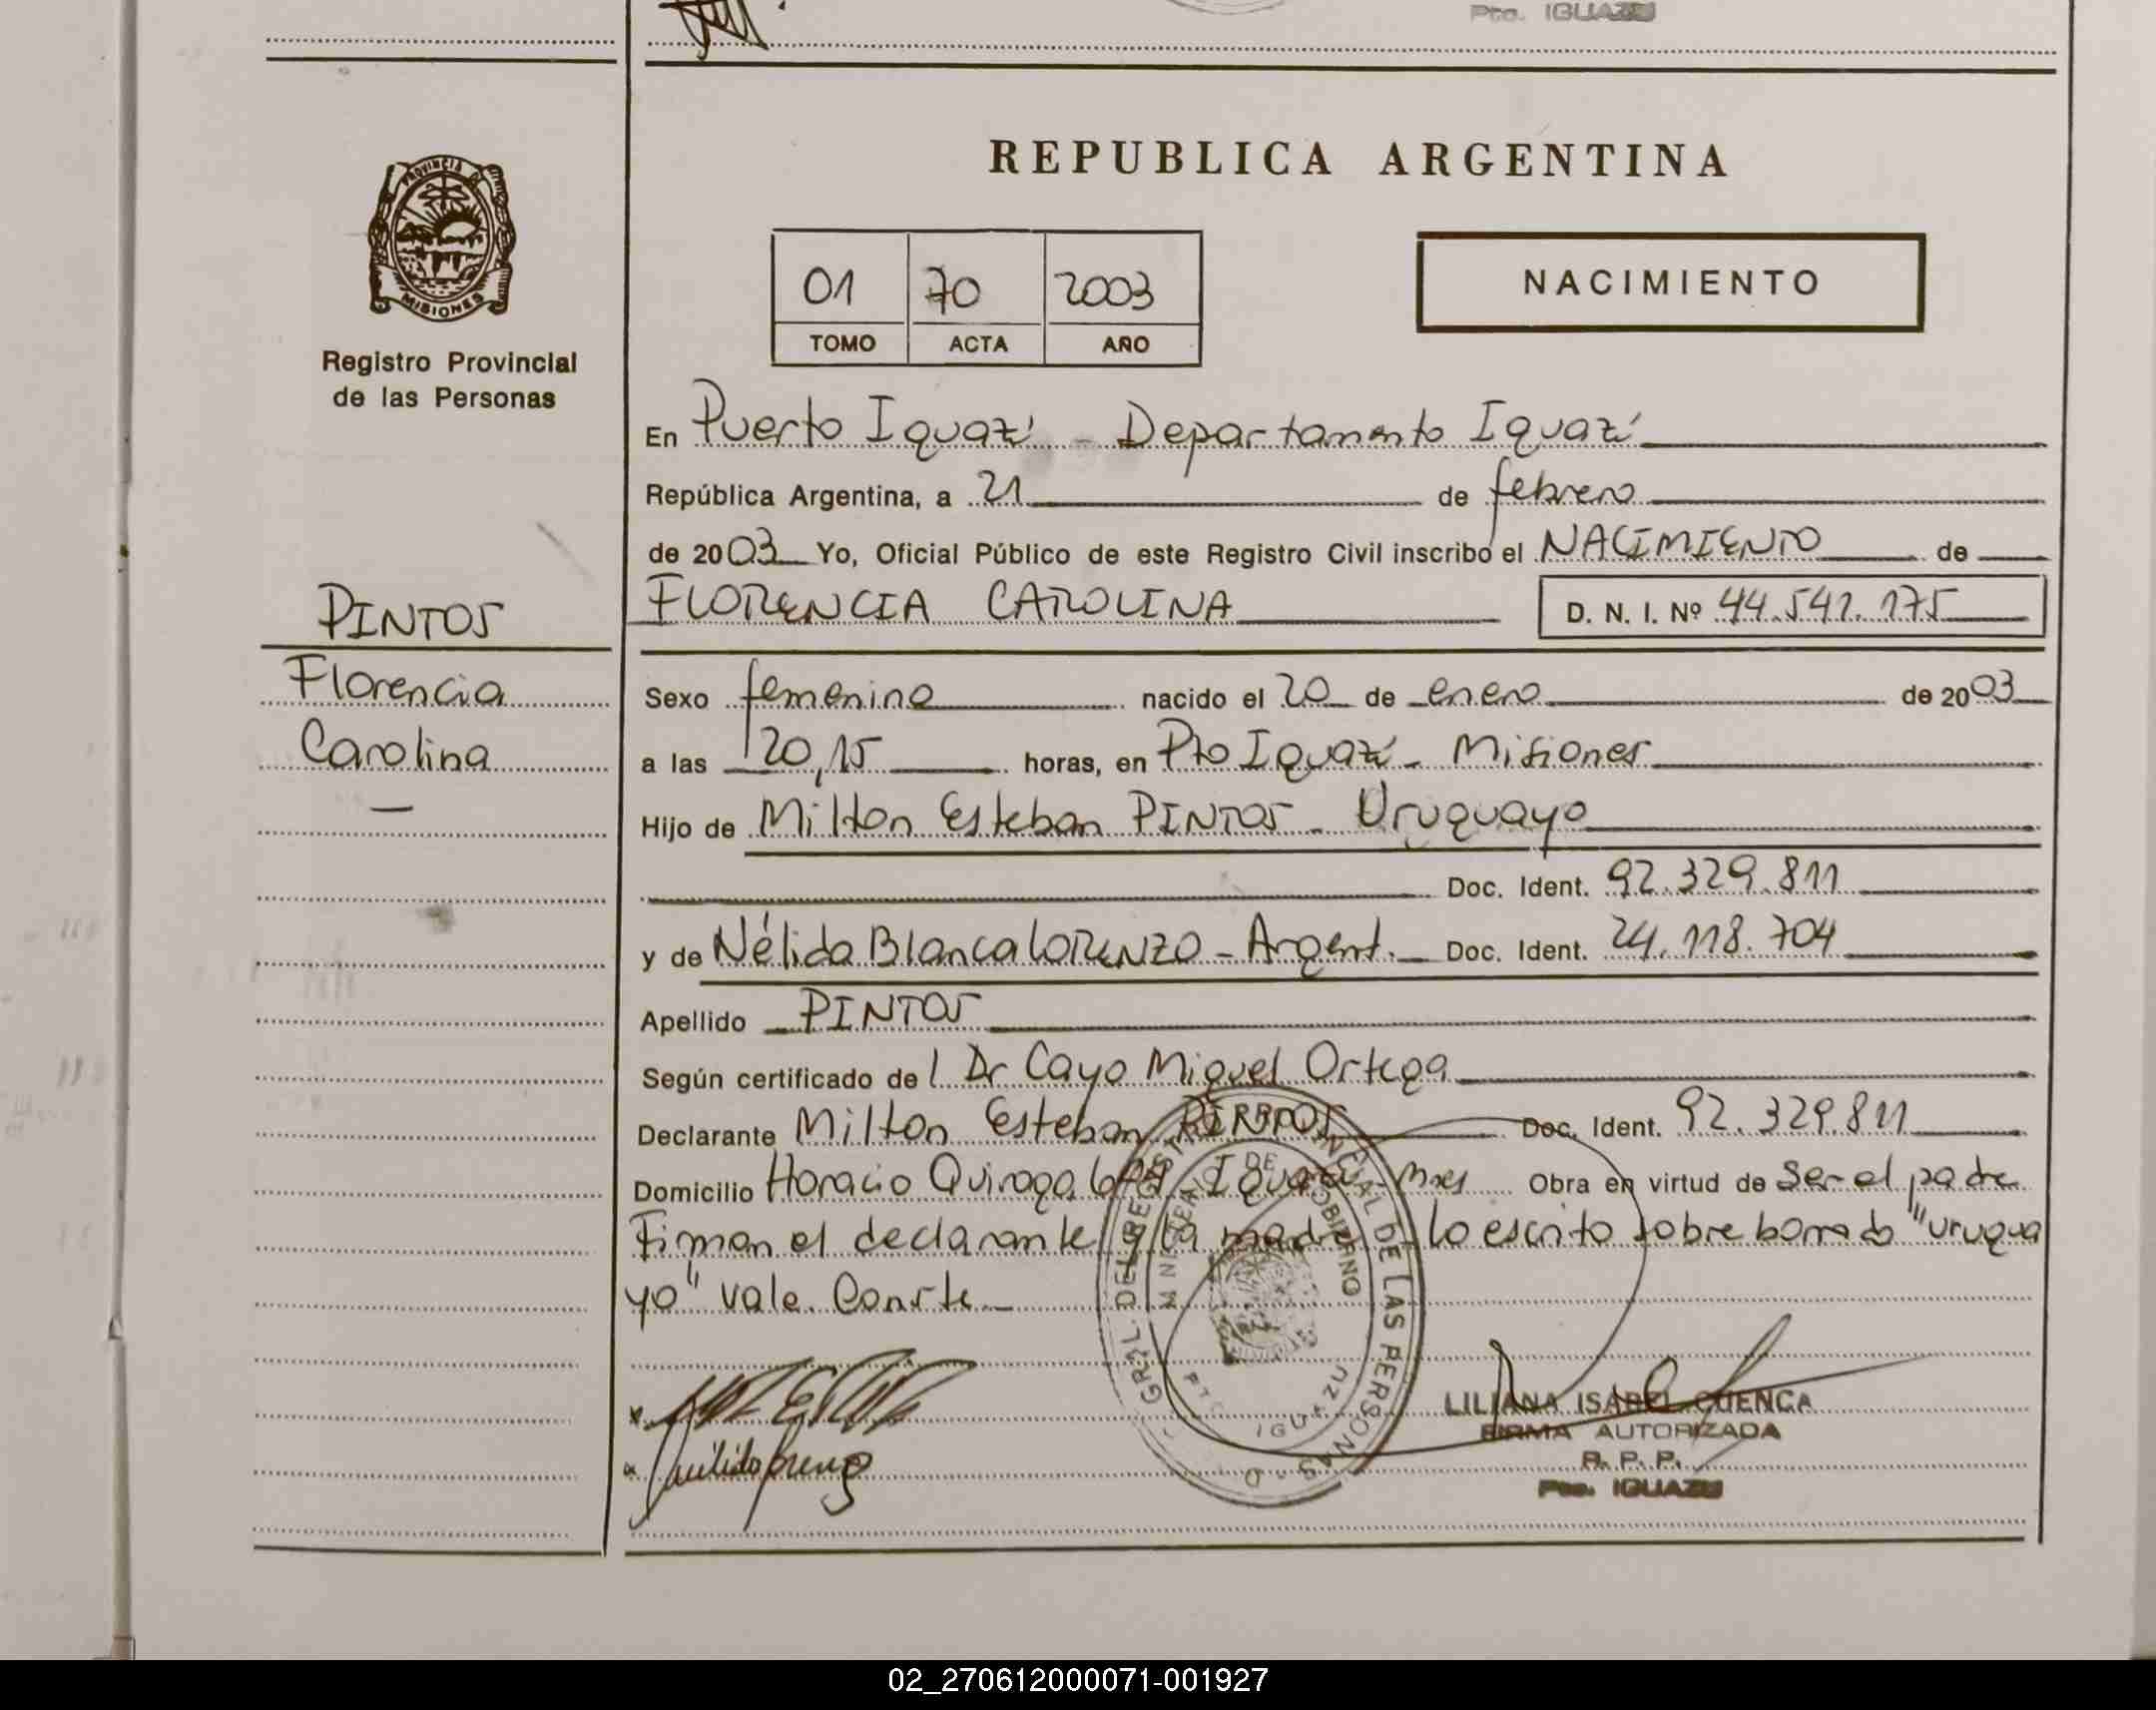 Pto. IGUAZU
PROVINCIA DE
MISIONES
Registro Provincial
de las Personas
REPUBLICA ARGENTINA
01 70 2003
TOMO ACTA AÑO
NACIMIENTO
En Puerto Iguazú - Departamento Iguazú
República Argentina, a 21 de febrero
de 2003 Yo, Oficial Público de este Registro Civil inscribo el NACIMIENTO de
FLORENCIA CAROLINA D. N. I. Nº 44.541.175
PINTOS
Florencia
Carolina
Sexo femenino nacido el 20 de enero de 2003
a las 20,15 horas, en Pto Iguazú - Misiones
Hijo de Milton Esteban PINTOS - Uruguayo
Doc. Ident. 92.329.811
y de Nélida Blanca LORENZO - Argent. Doc. Ident. 24.118.704
Apellido PINTOS
Según certificado del Dr Cayo Miguel Ortega
Declarante Milton Esteban PINTOS Doc. Ident. 92.329.811
Domicilio Horacio Quiroga Iguazú - Mnes Obra en virtud de ser el padre
Firman el declarante y la madre lo escrito sobre borrado "urugua
yo" vale. Conste.
DEL REGISTRO PROVINCIAL DE LAS PERSONAS
MINISTERIO DE GOBIERNO
PTO IGUAZU
LILIANA ISABEL CUENCA
FIRMA AUTORIZADA
R. P. P.
Pto. IGUAZU
02_270612000071-001927